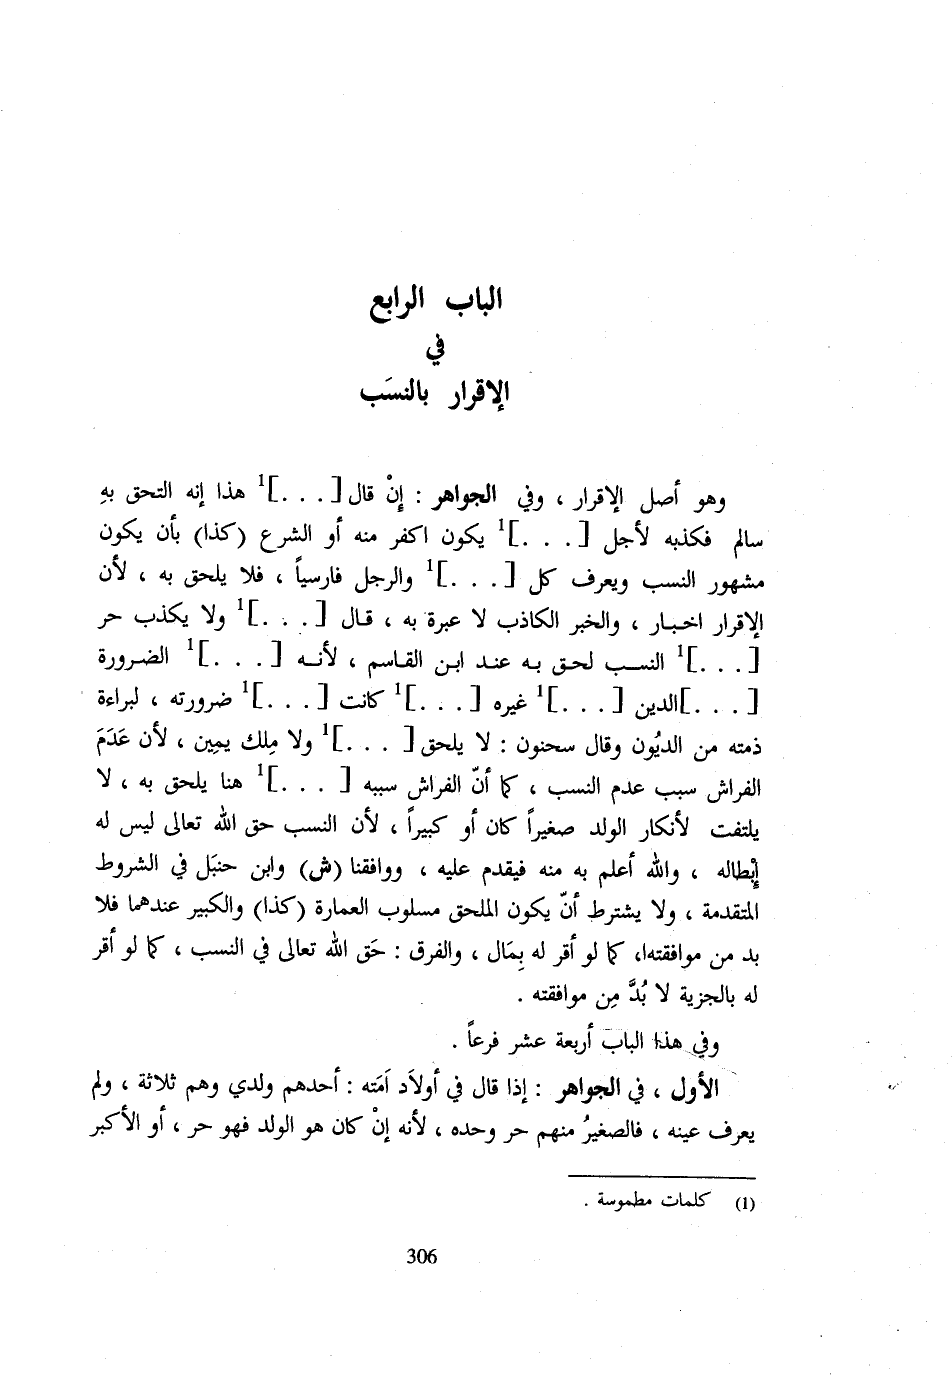 الباب الرابع
في
الإقرار بالنسَب
وهو أصل الإقرار ، وفي الجواهر : إنْ قال [. . .]1 هذا إنه التحق بهِ
سالم فكذبه لأجل [. . .]1 يكون اكفر منه أو الشرع (كذا) بأن يكون
مشهور النسب ويعرف كل [. . .]1 والرجل فارسياً ، فلا يلحق به ، لأن
الإقرار اخبار ، والخبر الكاذب لا عبرة به ، قال [. . .]1 ولا يكذب حر
[. . .]1 النسب لحق به عند ابن القاسم ، لأنه [. . .]1 الضرورة
[. . .]الدين [. . .]1 غيره [. . .]1 كانت [. . .]1 ضرورته ، لبراءة
ذمته من الديُون وقال سحنون : لا يلحق [. . .]1 ولا مِلك يمِين ، لأن عَدَمَ
الفراش سبب عدم النسب ، كما أنّ الفراش سببه [. . .]1 هنا يلحق به ، لا
يلتفت لأنكار الولد صغيراً كان أو كبيراً ، لأن النسب حق الله تعالى ليس له
إبطاله ، والله أعلم به منه فيقدم عليه ، ووافقنا (ش) وابن حنبَل في الشروط
المتقدمة ، ولا يشترط أنّ يكون الملحق مسلوب العمارة (كذا) والكبير عندهما فلا
بد من موافقتها، كما لو أقر له بِمَال ، والفرق : حَق الله تعالى في النسب ، كما لو أقر
له بالجزية لا بُدَّ مِن موافقته .
وفي هذا الباب أربعة عشر فرعاً .
الأول ، في الجواهر : إذا قال في أولاَد اَمَته : أحدهم ولدي وهم ثلاثة ، ولم
يعرف عينه ، فالصغيرُ منهم حر وحده ، لأنه إنْ كان هو الولد فهو حر ، أو الأكبر
(1) كلمات مطموسة .
306